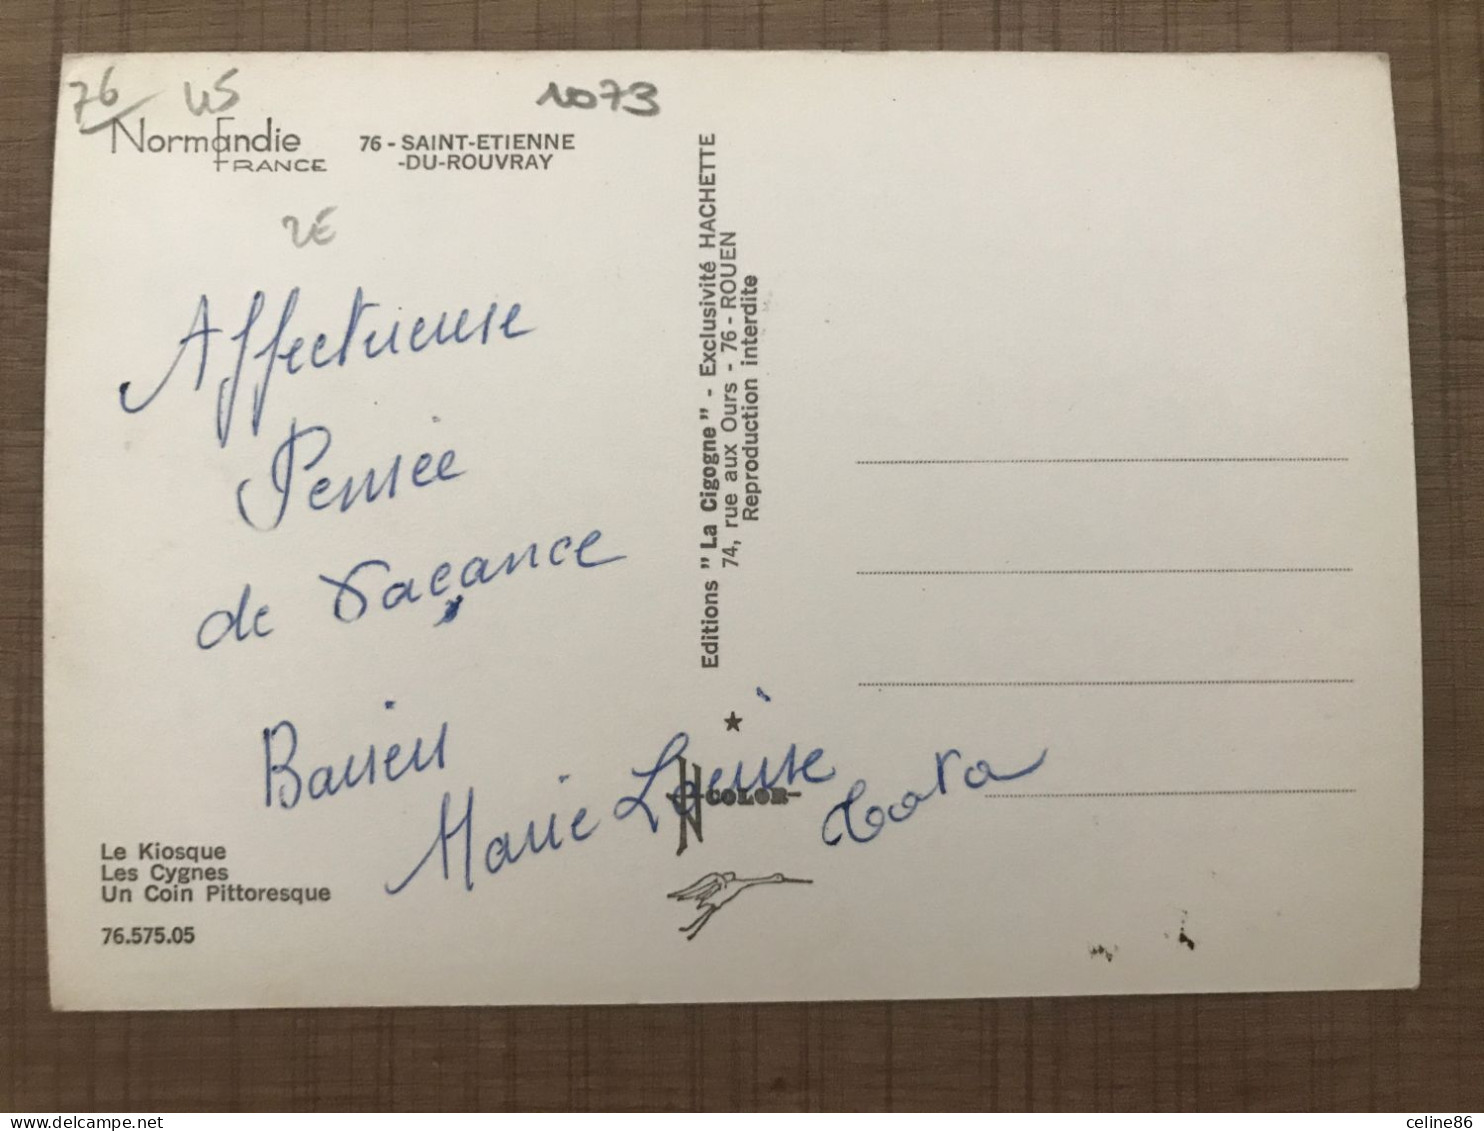 76 45 1073
Normandie
FRANCE
76 - SAINT-ETIENNE
-DU-ROUVRAY
2€
Affectueuse
Pensée
de Vaçance
Marie Louise
Le Kiosque
Les Cygnes
Un Coin Pittoresque
76.575.05
Editions "La Cigogne" - Exclusivité HACHETTE
74, rue aux Ours - 76 - ROUEN
Reproduction interdite
COLOR
celine86